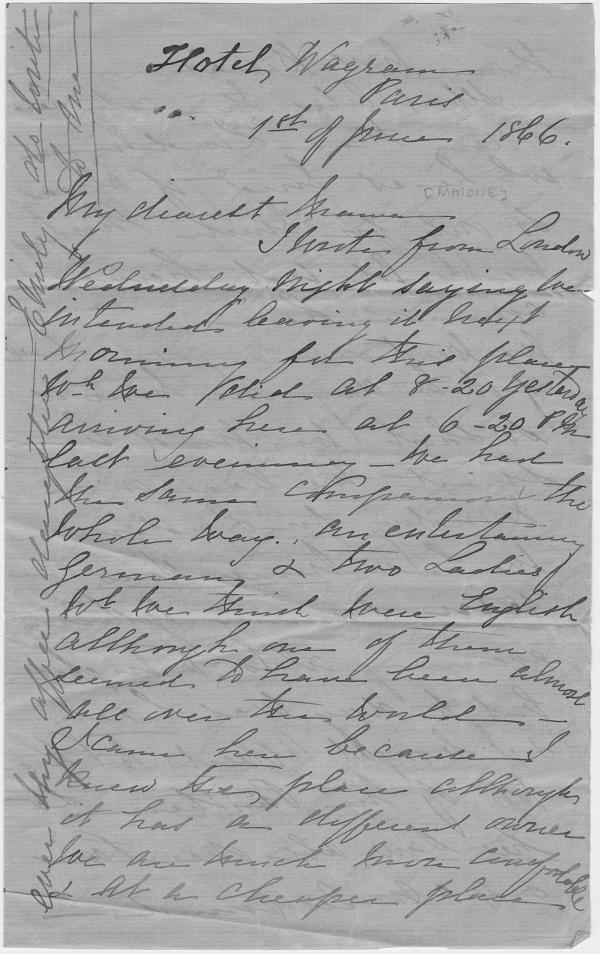 Hotel Wagram
Paris
1st of June 1866.
[MALONE]
My dearest Mama
I wrote from London
Wednesday night saying we
intended leaving it next
morning for this place
wh we did at 8-20 yesterday
arriving here at 6-20 P.M
last evening - We had
the same companions the
whole way., an entertaining
German, & two Ladies
wh we think were English
although one of them
seemed to have been almost
all over the world -
I came here because I
knew the place although
it has a different owner
We are much more comfortable
& at a cheaper place
ever thy affec daughter Emily
to me